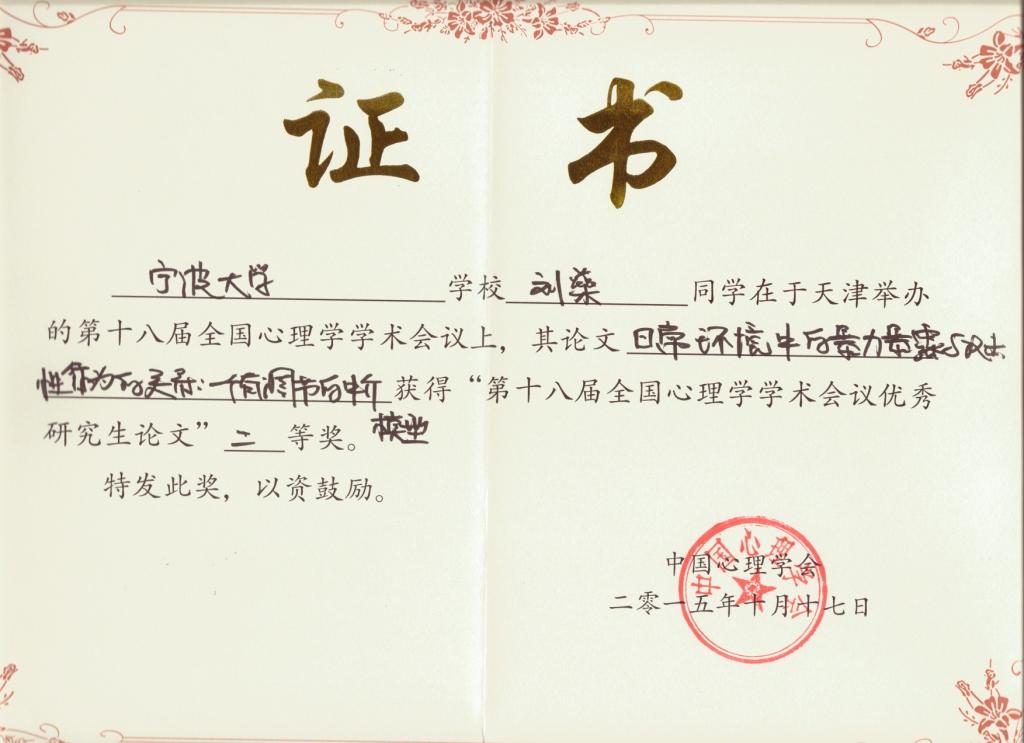 证 书
宁波大学 学校 刘燊 同学在于天津举办
的第十八届全国心理学学术会议上，其论文 日常环境中的暴力暴露与攻击
性行为的关系： 获得“第十八届全国心理学学术会议优秀
研究生论文” 二 等奖。
特发此奖，以资鼓励。
中国心理学会
二零一五年十月十七日
中国心理学会